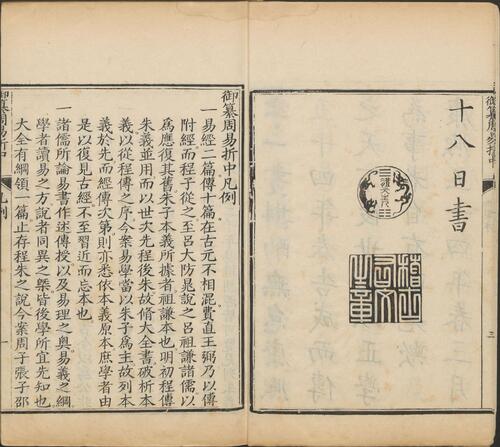 御纂周易折中
十八日書
體元主人
稽古右文之章
三
御纂周易折中凡例
一易經二篇傳十篇在古元不相混費直王弼乃以傳
附經而程子從之至呂大防晁說之呂祖謙諸儒以
為應復其舊朱子本義所據者祖謙本也明初程傳
朱義並用而以世次先程後朱故修大全書破析本
義以從程傳之序今案易學當以朱子為主故列本
義於先而經傳次第則亦悉依本義原本庶學者由
是以復見古經不至習近而忘本也
一諸儒所論易書作述傳授以及易理之奧易義之綱
學者讀易之方說者同異之槩皆後學所宜先知也
大全有綱領一篇止存程朱之說今案周子張子邵
御纂周易折中
凡例
一